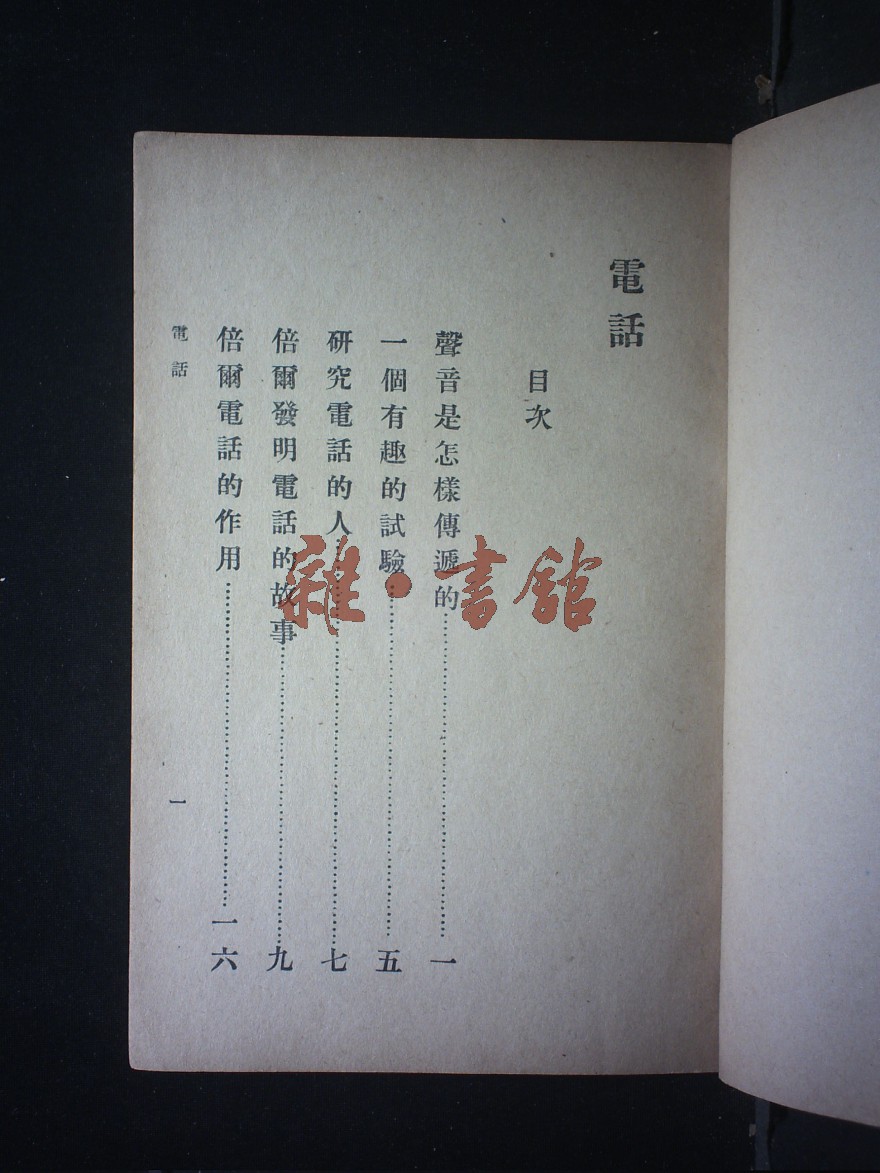 電話
目次
聲音是怎樣傳遞的……一
一個有趣的試驗……五
研究電話的人……七
倍爾發明電話的故事……九
倍爾電話的作用……一六
電話
一
雜·書館